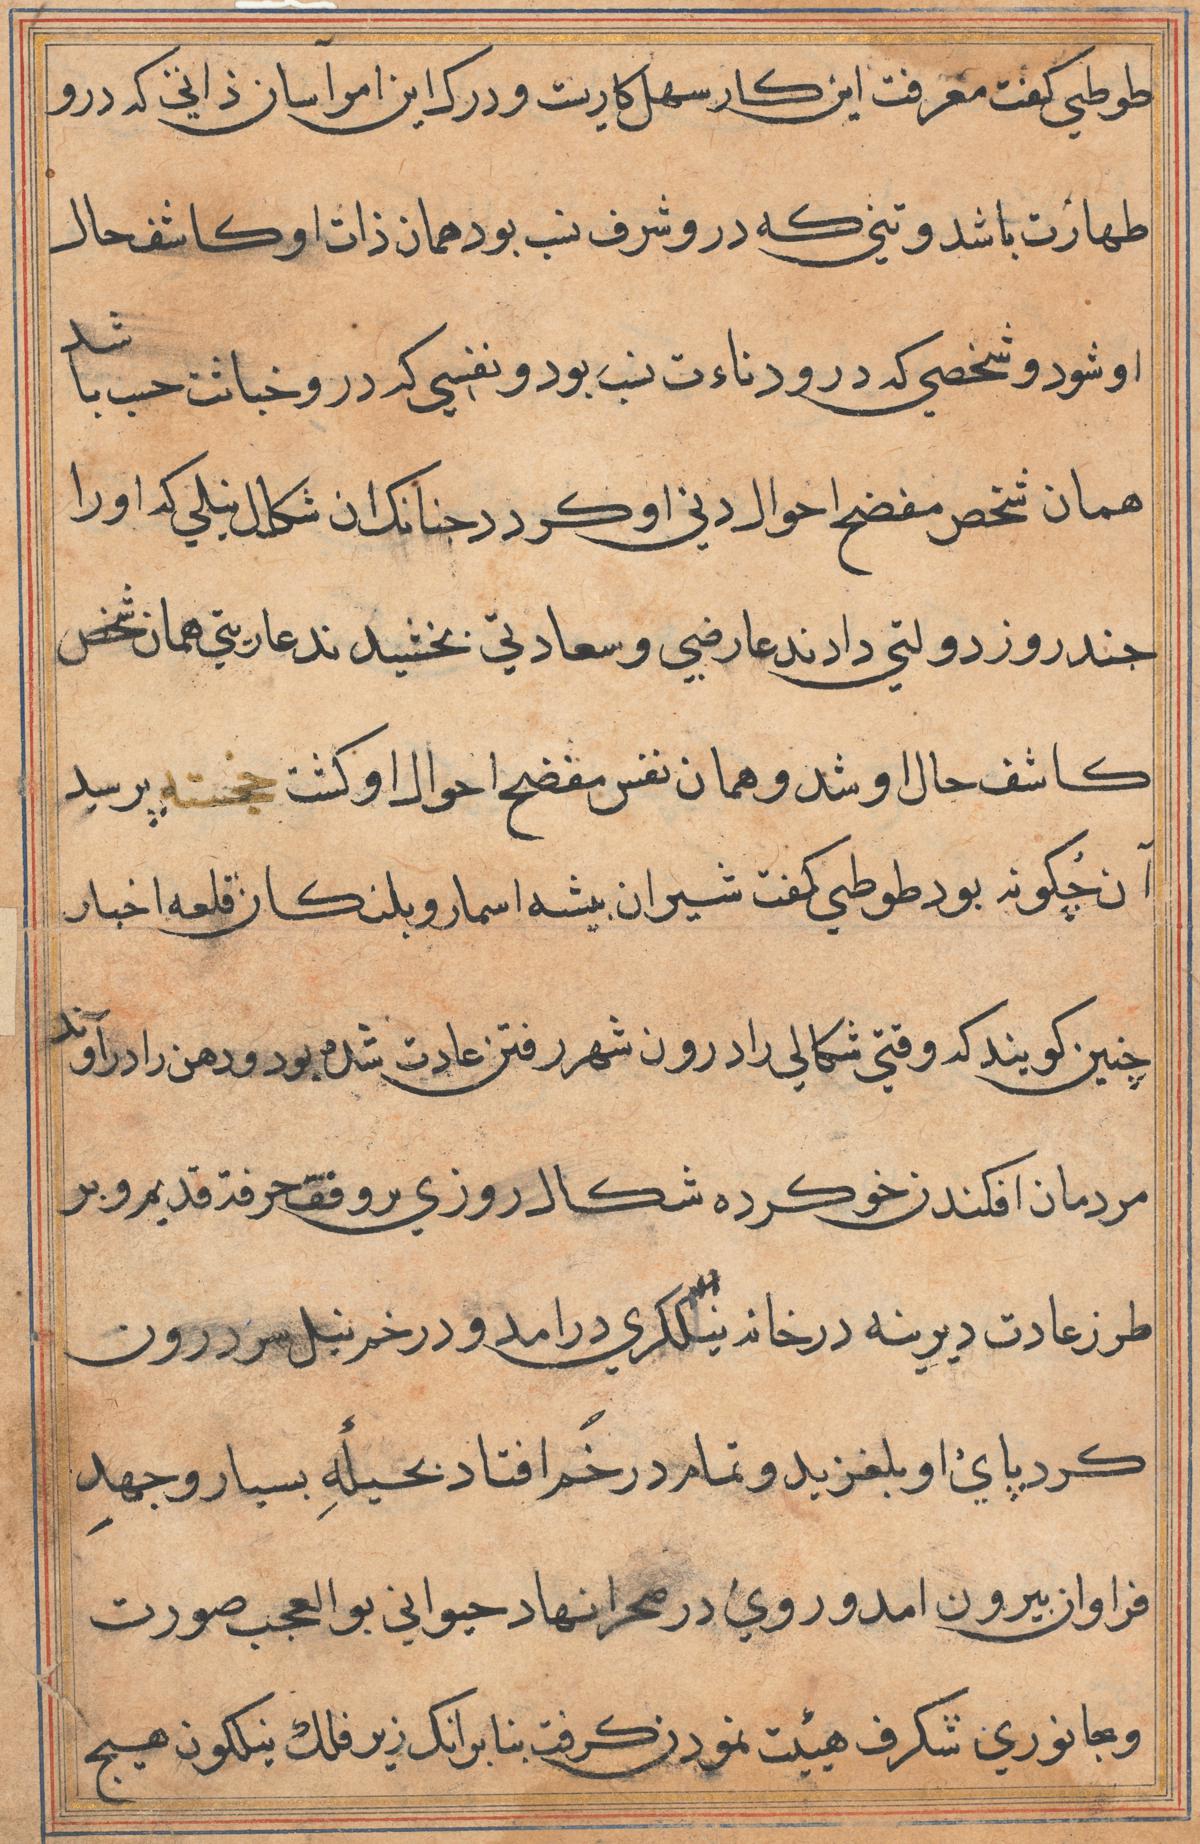 طوطي كفت معرفت اين كار سهل كاريست و درك اين امر آسان ذاتي كه درو
طهارت باشد و تني كه درو شرف نسب بود همان ذات او كاشف حال
او شود و شخصي كه درو دناءت نسب بود و نفسي كه درو خباثت حسب باشد
همان شخص مفضح احوال دني او كردد جنانك ان شكال نيلي كه او را
جند روز دولتي دادند عارضي و سعادتي بخشيدند عاريتي همان شخص
كاشف حال او شد و همان نفس مفضح احوال او كشت خجسته پرسيد
آن چكونه بود طوطي كفت شيران بيشه اسمار و پلنكان قلعه اخبار
چنين كويند كه وقتي شكالي را درون شهر رفتن عادت شده بود و دهن را در آوند
مردمان افكندن خو كرده شكال روزي بر وفق حرفة قديم و بر
طرز عادت ديرينه در خانه نيلكري درامد و در خم نيل سر درون
كرد پاي او بلغزيد و تمام در خم افتاد بحيله بسيار و جهد
فراوان بيرون امد و روي در صحرا نهاد حيواني بوالعجب صورت
و جانوري شكرف هيئت نمودن كرفت بنا برانك زير فلك نيلكون هيچ